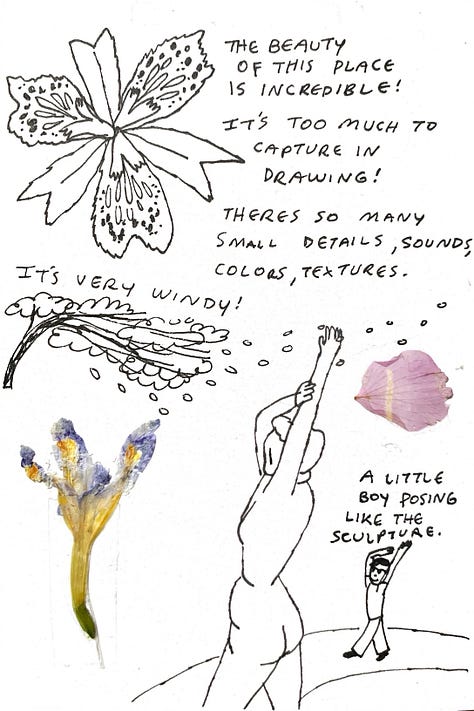 THE BEAUTY
OF THIS PLACE
IS INCREDIBLE!
IT'S TOO MUCH TO
CAPTURE IN
DRAWING!
THERES SO MANY
SMALL DETAILS, SOUNDS,
COLORS, TEXTURES.
IT'S VERY WINDY!
A LITTLE
BOY POSING
LIKE THE
SCULPTURE.